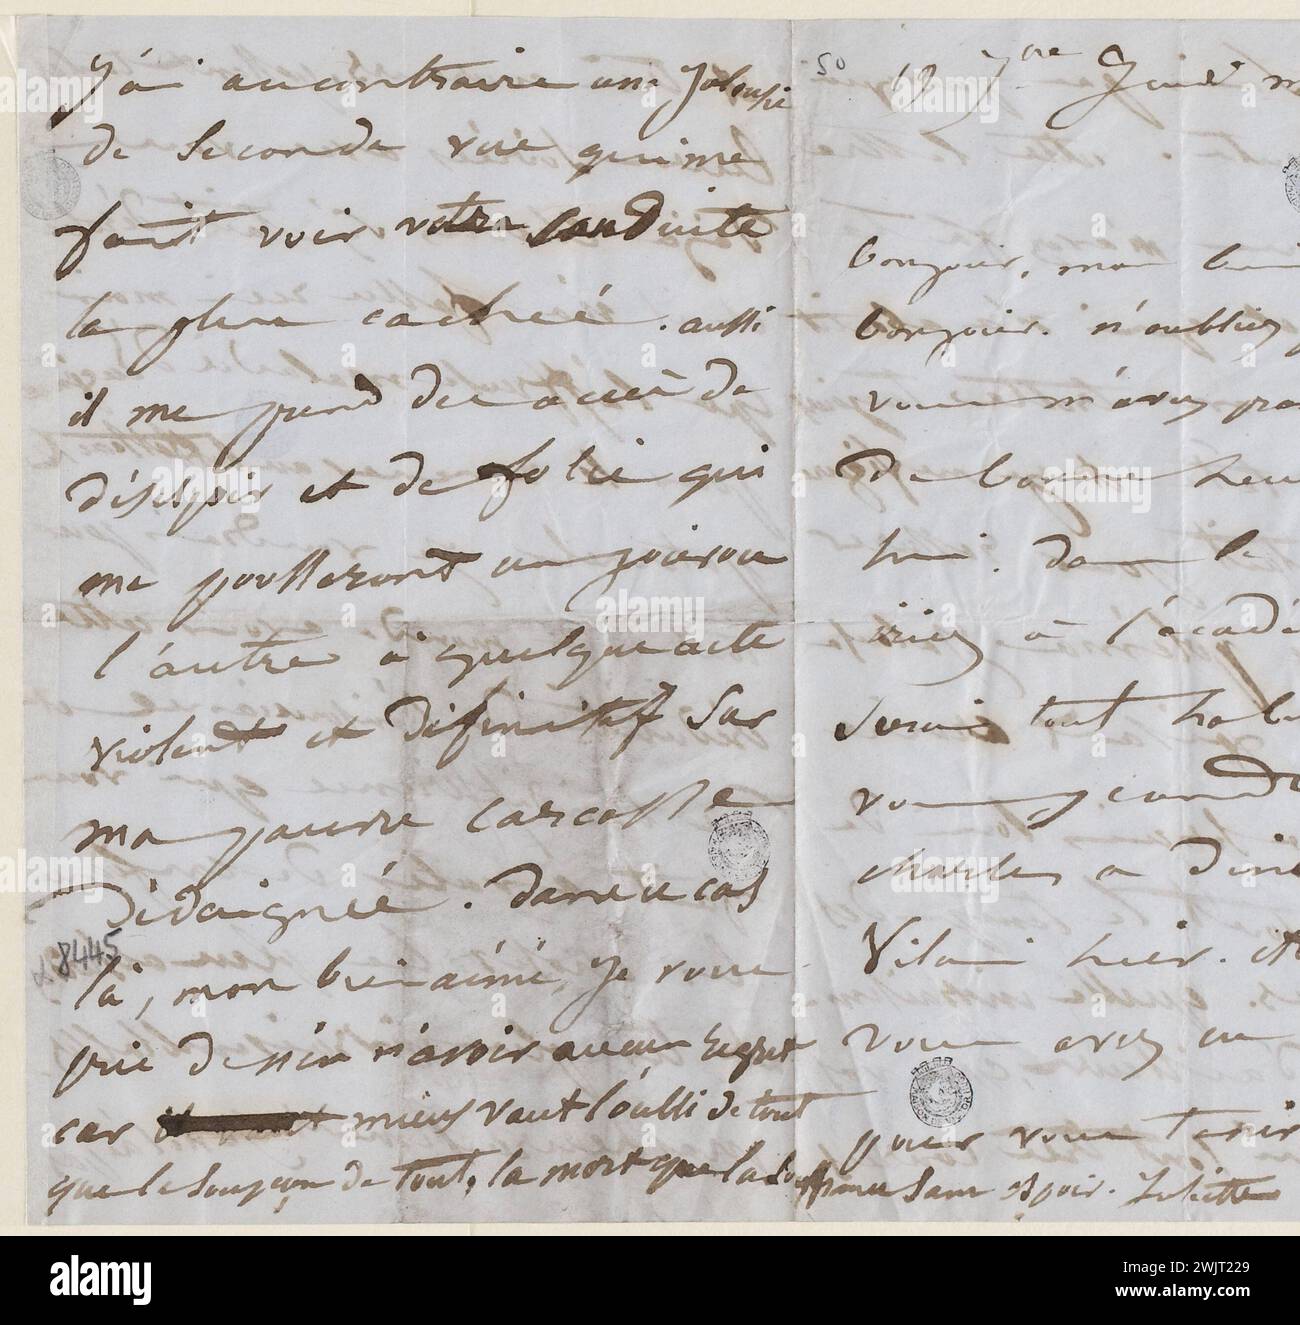 J'ai au contraire une jalousie
de seconde vue qui me
fait voir votre conduite
la plus cachée. aussi
il me prend des accès de
désespoir et de folie qui
me pousseront un jour ou
l'autre à quelque acte
violent et définitif sur
ma pauvre carcasse
dédaignée. dans ce cas
là, mon bien aimé, je vous
prie de n'en n'avoir aucun regret
car mieux vaut l'oubli de tout
que le soupçon de tout, la mort que la souffrance sans espoir. Juliette
50
7bre Jeudi m
bonjour, mon bi
bonjour. n'oubliez
vous m'avez pro
de bonne heu
hui. dans le
iriez à l'acadé
serai tout habi
vous
charles a diné
Vilain hier. et
vous avez eu
pour vous tenir
8445
alamy
Image ID: 2WJT229
www.alamy.com